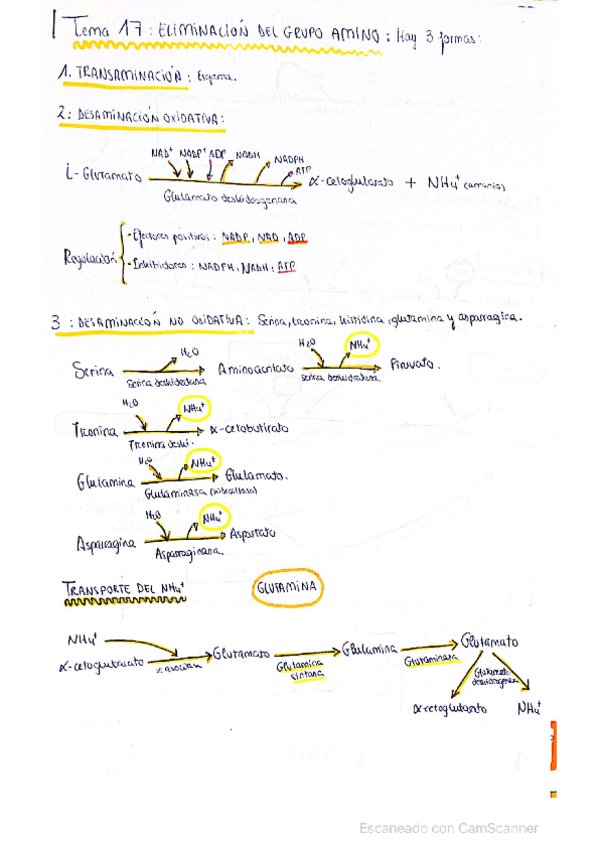 Tema 17: ELIMINACIÓN DEL GRUPO AMINO: Hay 3 formas:
1. TRANSAMINACIÓN: Esquema.
2: DESAMINACIÓN OXIDATIVA:
NAD+ NADP+ ADP NADH NADPH ATP
L-Glutamato α-cetoglutarato + NH4+ (amonio)
Glutamato deshidrogenasa
Regulación
- Efectores positivos: NADP, NAD, ADP
- Inhibidores: NADPH, NADH, ATP
3: DESAMINACIÓN NO OXIDATIVA: Serina, treonina, histidina, glutamina y asparagina.
H2O H2O NH4+
Serina Aminoacrilato Piruvato.
Serina deshidratasa serina deshidratasa
H2O NH4+
Treonina α-cetobutirato
Treonina deshi.
H2O NH4+
Glutamina Glutamato.
Glutaminasa
H2O NH4+
Asparragina Aspartato
Asparraginasa.
TRANSPORTE DEL NH4+ GLUTAMINA
NH4+
α-cetoglutarato Glutamato Glutamina Glutamato
Glutamina sintasa Glutaminasa
Glutamato deshidrogenasa
α-cetoglutarato NH4+
Escaneado con CamScanner